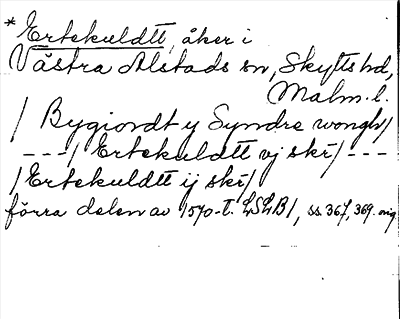 * Ertekuldtt, åker i
Västra Alstads sn, Skytts hd,
Malm. l.
/ Bygiordt y Syndre wongh/
---/ Ertekuldtt vj skr/ ---
/ Ertekuldtt ij skr/
förra delen av 1570-t. LSLB/, ss. 367, 369. orig.